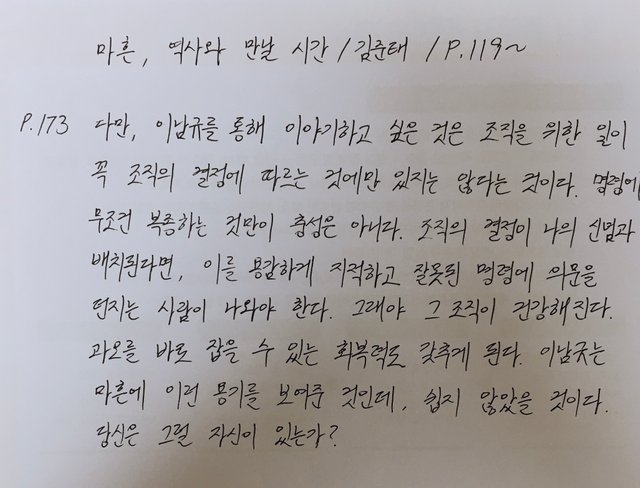 마흔, 역사와 만날 시간 / 김준태 / P.119~
P.173 다만, 이남규를 통해 이야기하고 싶은 것은 조직을 위한 일이
꼭 조직의 결정에 따르는 것에만 있지는 않다는 것이다. 명령에
무조건 복종하는 것만이 충성은 아니다. 조직의 결정이 나의 신념과
배치된다면, 이를 용감하게 지적하고 잘못된 명령에 의문을
던지는 사람이 나와야 한다. 그래야 그 조직이 건강해진다.
과오를 바로 잡을 수 있는 회복력도 갖추게 된다. 이남규는
마흔에 이런 용기를 보여준 것인데, 쉽지 않았을 것이다.
당신은 그럴 자신이 있는가?